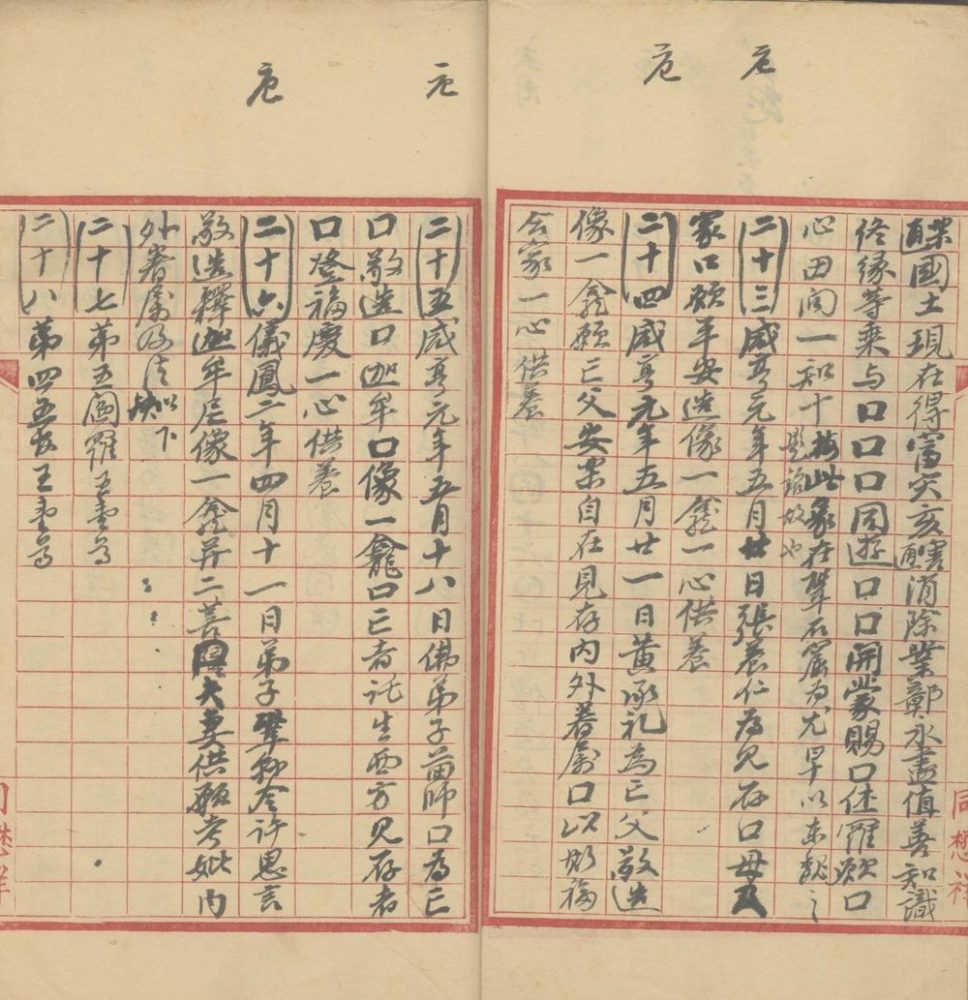 国土現在得富灾亥消除業鄣永盡值善知識
终缘等乘与口口口同遊口口口開蒙賜口住羅願口
心田间一知十按此象在鞏石窟为尤早以东魏之
題詔故也
(二十三)咸亨元年五月廿日張養仁為見存口母及
家口願平安造像一龕一心供養
(二十四)咸亨元年五月廿一日黄承礼為亡父敬造
像一龕願亡父安樂自在見存内外眷属口以助福
合家一心供養
(二十五)咸亨元年五月十八日佛弟子苗師口為亡
口敬造口迦牟口像一龕口亡者託生西方見存者
口登福慶一心供養
(二十六)儀鳳二年四月十一日弟子鞏縣令許思言
敬造釋迦牟尼像一龕并二菩夫妻供願考妣内
外眷属及法如下
二十七第五閻羅王畫
(二十八)第四五王畫
同懋祥
同懋祥